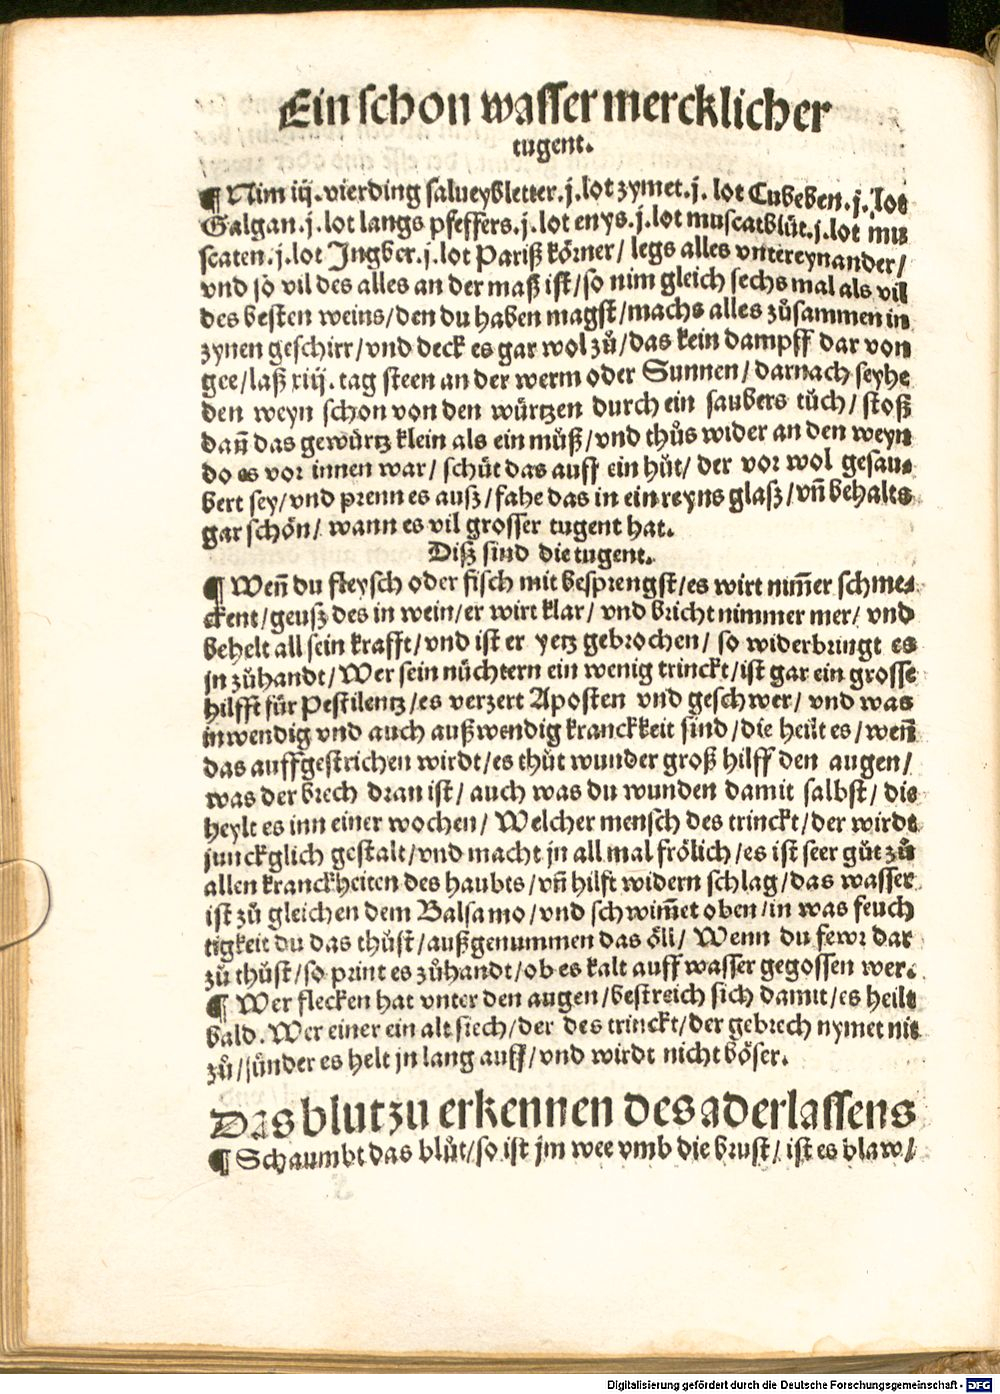 Ein schon wasser mercklicher
tugent.
¶ Nim iij. vierding salueybletter. j. lot zymet. j. lot Cubeben. j. lot
Galgan. j. lot langs pfeffers. j. lot enys. j. lot muscatblůt. j. lot mus
scaten. j. lot Jngber. j. lot Pariß körner/ legs alles vntereynander/
vnd so vil des alles an der maß ist/ so nim gleich sechs mal als vil
des besten weins/ den du haben magst/ machs alles zůsammen in
zynen geschirr/ vnd deck es gar wol zů/ das kein dampff dar von
gee/ laß xiij. tag steen an der werm oder Sunnen/ darnach seyhe
den weyn schon von den würtzen durch ein saubers tůch/ stoß
dañ das gewürtz klein als ein můß/ vnd thůs wider an den weyn
do es vor innen war/ schüt das auff ein hůt/ der vor wol gesau-
bert sey/ vnd prenn es auß/ fahe das in ein reyns glaß/ vñ behalts
gar schön/ wann es vil grosser tugent hat.
Diß sind die tugent.
¶ Weñ du fleysch oder fisch mit besprengst/ es wirt nim̃er schme-
ckent/ geuß des in wein/ er wirt klar/ vnd bricht nimmer mer/ vnd
behelt all sein krafft/ vnd ist er yetz gebrochen/ so widerbringt es
jn zůhandt/ Wer sein nüchtern ein wenig trinckt/ ist gar ein grosse
hilfft für Pestilentz/ es verzert Aposten vnd geschwer/ vnd was
inwendig vnd auch außwendig kranckkeit sind/ die heilt es/ weñ
das auffgestrichen wirdt/ es thůt wunder groß hilff den augen/
was der brech dran ist/ auch was du wunden damit salbst/ die
heylt es inn einer wochen/ Welcher mensch des trinckt/ der wirdt
junckglich gestalt/ vnd macht jn all mal frölich/ es ist seer gůt zů
allen kranckheiten des haubts/ vñ hilft widern schlag/ das wasser
ist zů gleichen dem Balsamo/ vnd schwim̃et oben/ in was feuch
tigkeit du das thůst/ außgenummen das öli/ Wenn du fewr dar
zů thůst/ so print es zůhandt/ ob es kalt auff wasser gegossen wer.
¶ Wer flecken hat vnter den augen/ bestreich sich damit/ es heilt
bald. Wer einer ein alt siech/ der des trinckt/ der gebrech nymet nit
zů/ sunder es helt jn lang auff/ vnd wirdt nicht böser.
Das blut zu erkennen des aderlassens
¶ Schaumbt das blůt/ so ist jm wee vmb die brust/ ist es blaw/
Digitalisierung gefördert durch die Deutsche Forschungsgemeinschaft - DFG